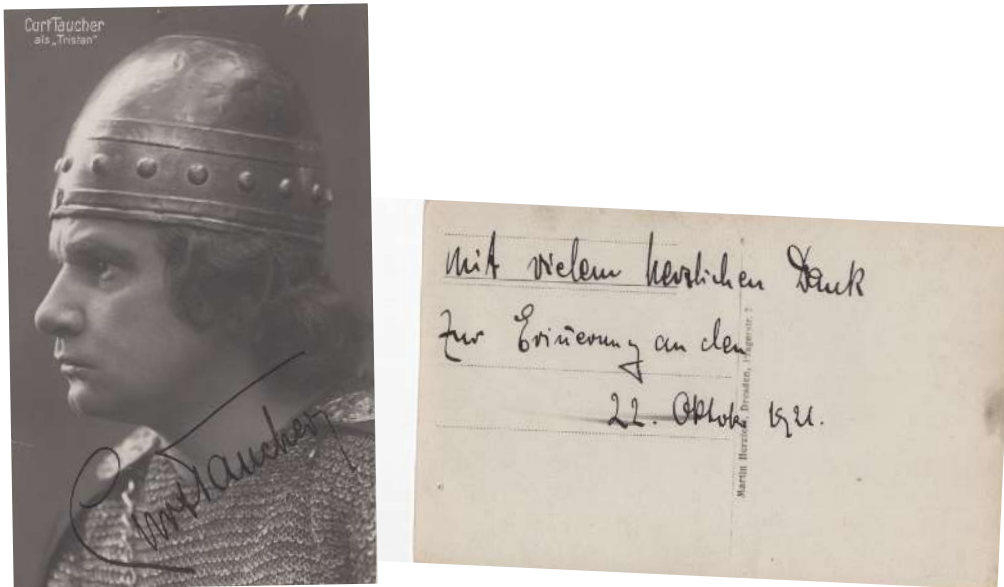 Curt Taucher
als „Tristan“
Curt Taucher
Mit vielem herzlichen Dank
zur Erinnerung an den
22. Oktober 1921.
Martin Herzfeld, Dresden, Pragerstr. 7